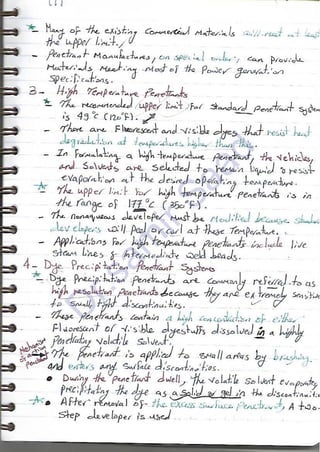 (1)
* Many of the existing Commercial Materials will meet at least
the upper limit.
- Penetrant Manufactures, on special order, can provide
Materials Meeting most of the Power generation
Specifications.
3- High Temperature Penetrants
* The recommended upper limit for standard penetrant system
is 49°C (120°F).
- There are Fluorescent and visible dyes that resist heat
degradation at temperatures higher than this.
- In Formulating a high-temperature penetrant, the vehicles,
and Solvents are Selected to remain liquid & resist
evaporation at the desired operating temperature.
* The upper limit for high temperature penetrants is in
the range of 177°C (350°F).
- The nonaqueous developer must be Modified because standard
developers will peel or curl at these Temperature.
- Applications for high temperature penetrants include live
steam lines & intermediate weld beads.
4- Dye Precipitation Penetrant Systems
* Dye Precipitation Penetrants are commonly referred to as
high resolution penetrants because they are extremely sensitive
to small, tight discontinuities.
- These penetrants contain a high concentration of either
Fluorescent or visible dyestuffs dissolved in a highly
Penetrating volatile Solvent.
- The penetrant is applied to small areas by brushing
and enters any surface discontinuities.
• During the penetrant dwell, the volatile solvent evaporates,
precipitating the dye as a solid or gel in the discontinuities
• After removal of the excess surface penetrant, A two-
step developer is used